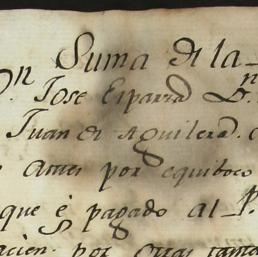 Suma de la
Dn. Jose Esparza Dn.
Juan de Aguilera
antes por equiboco
que é pagado al P.
por otras tanta